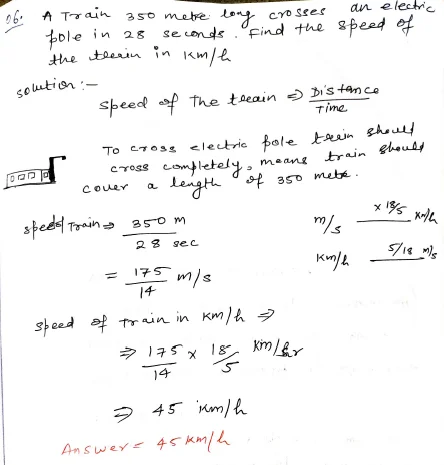 06. A Train 350 metre long crosses an electric
pole in 28 seconds. Find the speed of
the train in Km/h
solution :-
speed of The train ⇒ Distance / Time
To cross electric pole train should
cross completely, means train should
cover a length of 350 metre.
speed Train ⇒ 350 m / 28 sec
m/s × 18/5 Km/h
Km/h 5/18 m/s
= 175/14 m/s
speed of Train in Km/h ⇒
⇒ 175/14 × 18/5 Km/hr
⇒ 45 Km/h
Answer = 45 Km/h